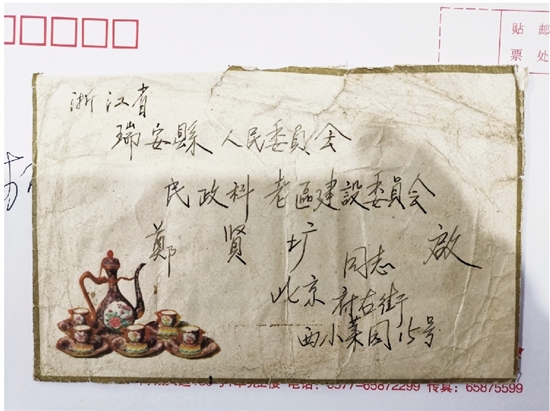 贴 邮
票 处
浙江省
瑞安縣人民委員会
民政科 老區建設委員会
鄭賢圹 同志 啟
北京 府右街
西小菜园15号
电话：0577-65872299 传真：65875599